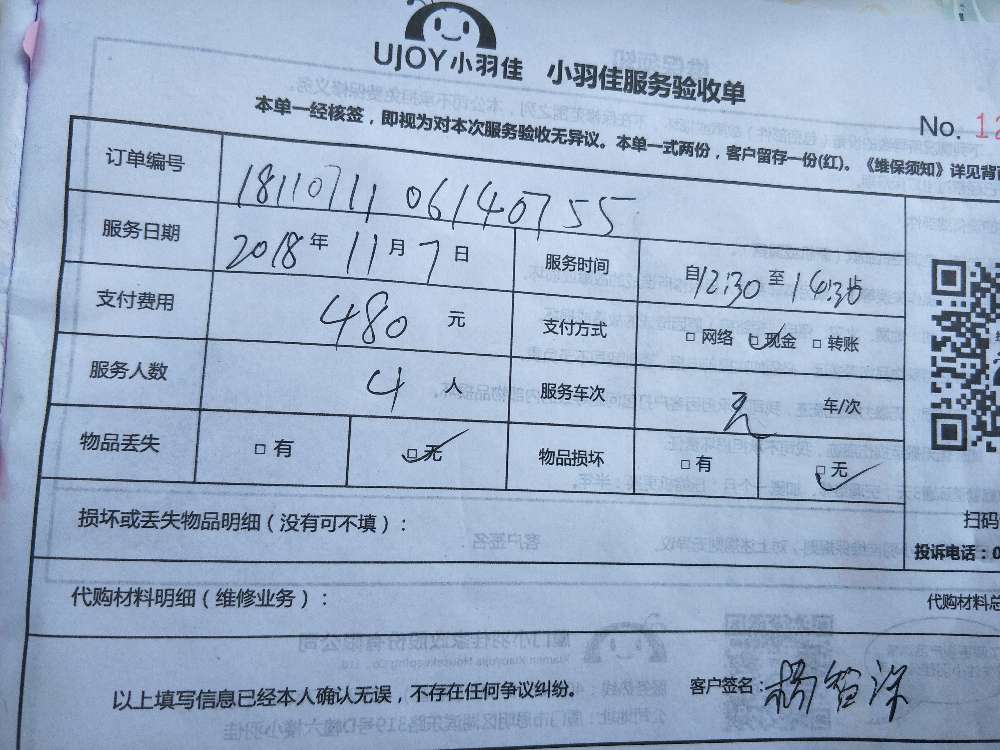 UJOY小羽佳 小羽佳服务验收单
No. 12
本单一经核签，即视为对本次服务验收无异议。本单一式两份，客户留存一份(红)。《维保须知》详见背面
订单编号 18110711 06140755
服务日期 2018年 11月 7日 服务时间 自12:30至14:30止
支付费用 480 元 支付方式 □网络 □现金 □转账
服务人数 4 人 服务车次 车/次
物品丢失 □有 □无 物品损坏 □有 □无
损坏或丢失物品明细（没有可不填）：
扫码
投诉电话：0
代购材料明细（维修业务）：
代购材料总
以上填写信息已经本人确认无误，不存在任何争议纠纷。 客户签名：杨智